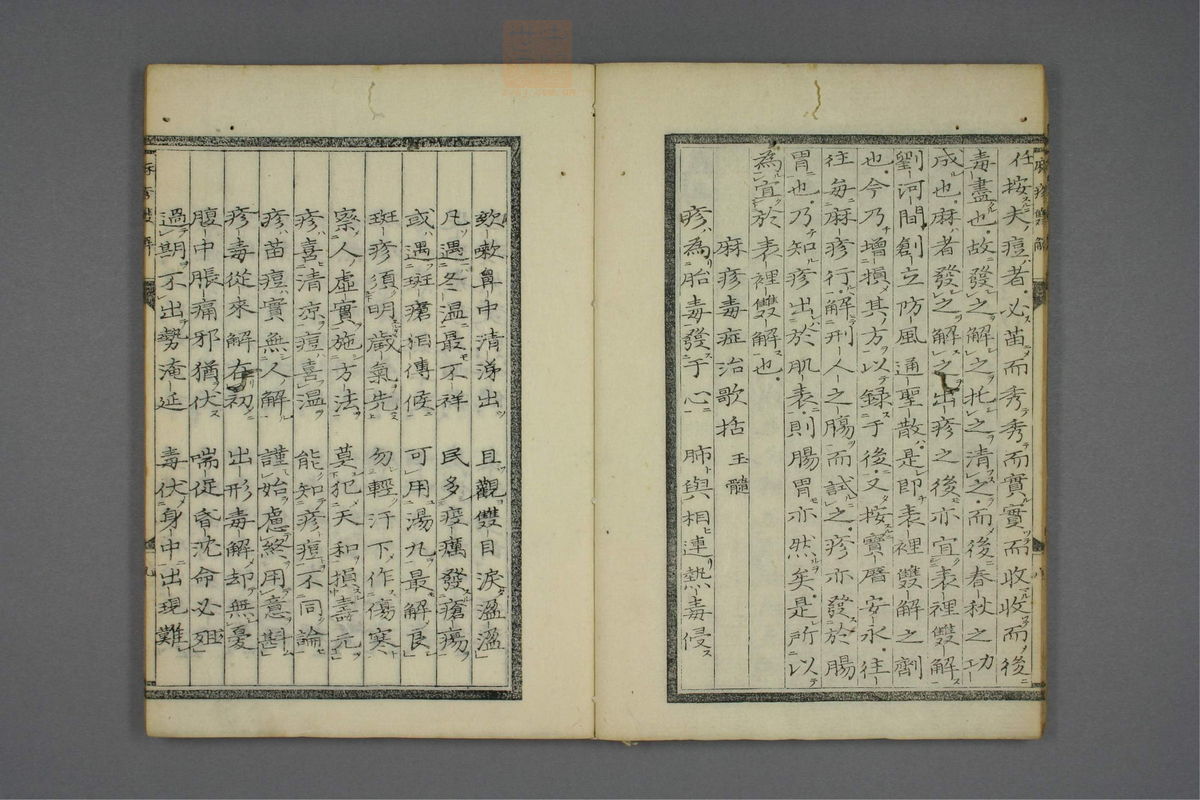 任按夫痘者必苗而秀秀而實實而收收而後
毒盡也故發之解之托之清之而後春秋之功
成也麻者發之解之出疹之後亦宜表裡雙解
劉河間創立防風通聖散是即表裡雙解之劑
也今乃增損其方以録于後又按寶曆安永往
往每麻疹行解刑人之膓而試之疹亦發於腸
胃也乃知疹出於肌表則腸胃亦然矣是所以
為宜於表裡雙解也
麻疹毒症治歌括 玉髓
疹為胎毒發于心 肺與相連熱毒侵
欬嗽鼻中清涕出 且觀雙目淚溫溫
凡遇冬温最不祥 民多疫癘發瘡瘍
或遇斑瘡相傳候 可用湯九最解良
斑疹須明歲氣先 勿輕汗下作傷寒
察人虛實施方法 莫犯天和損壽元
疹喜清凉痘喜温 能知疹痘不同論
疹苗痘實無人解 謹始慮終用意斟
疹毒從來解在初 出形毒解却無憂
腹中脹痛邪猶伏 喘促昏沈命必殂
過期不出勢淹延 毒伏身中出現難
麻疹雙解 八
麻疹雙解 九